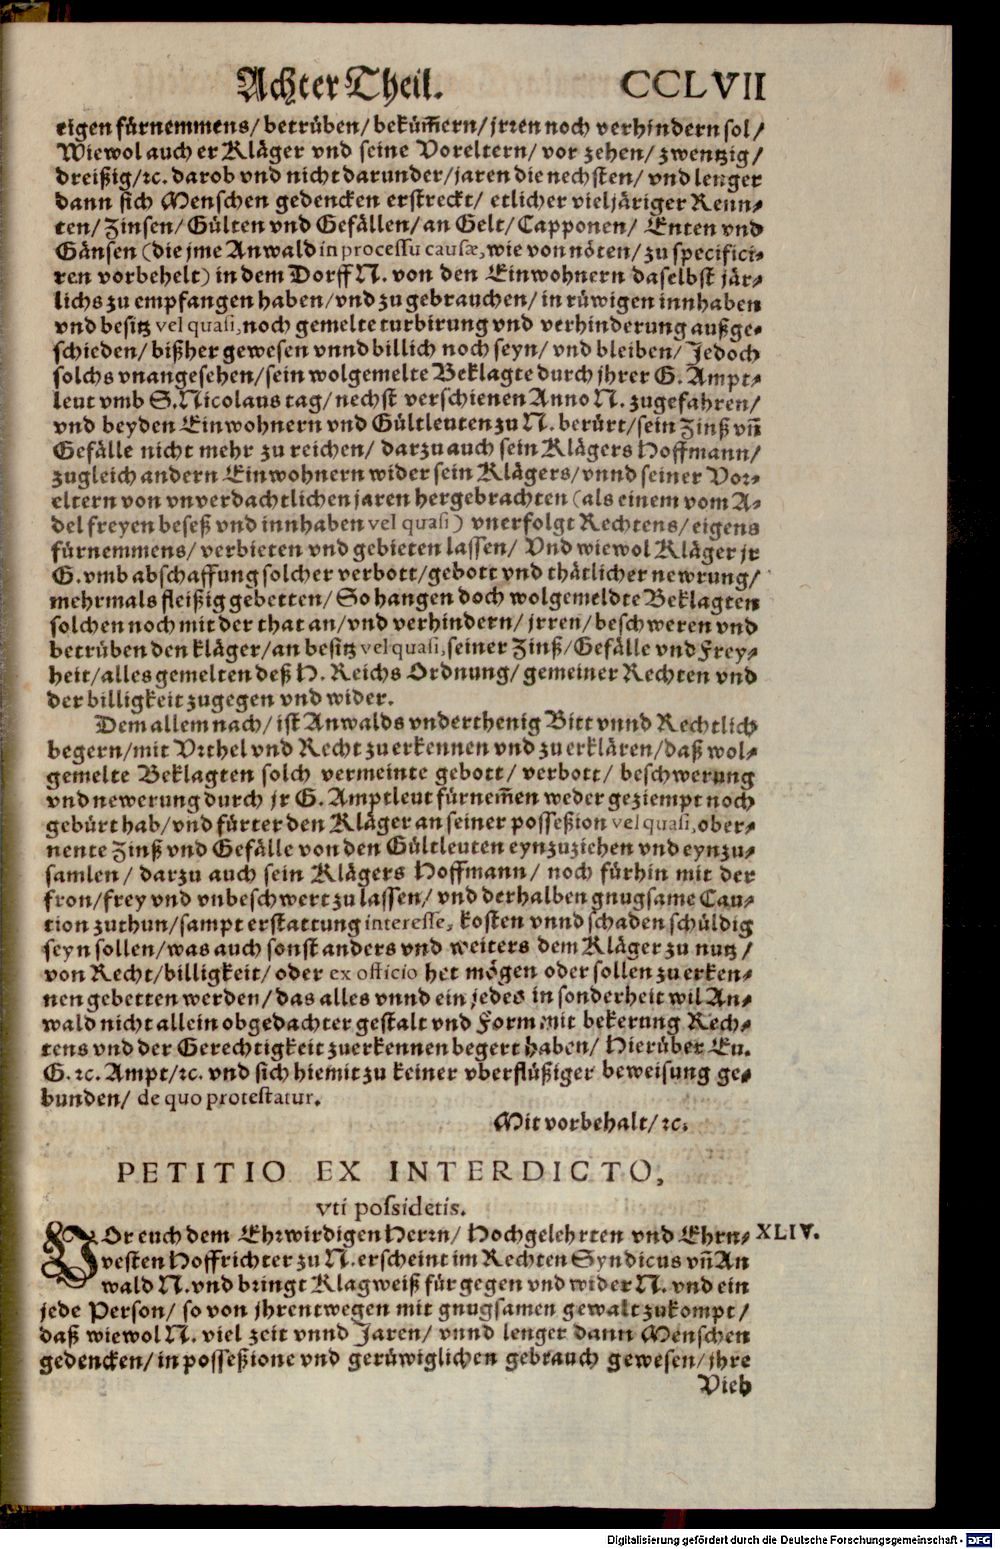 Achter Theil. CCLVII
eigen fürnemmens/ betrüben/ beküm̃ern/ jrren noch verhindern sol/
Wiewol auch er Kläger vnd seine Voreltern/ vor zehen/ zwentzig/
dreißig/ ꝛc. darob vnd nicht darunder/ jaren die nechsten/ vnd lenger
dann sich Menschen gedencken erstreckt/ etlicher vieljäriger Renn⸗
ten/ Zinsen/ Gülten vnd Gefällen/ an Gelt/ Capponen/ Enten vnd
Gänsen (die jme Anwald in processu causæ, wie von nöten/ zu specifici⸗
ren vorbehelt) in dem Dorff N. von den Einwohnern daselbst jär⸗
lichs zu empfangen haben/ vnd zu gebrauchen/ in rüwigen innhaben
vnd besitz vel quasi, noch gemelte turbirung vnd verhinderung außge⸗
schieden/ bißher gewesen vnnd billich noch seyn/ vnd bleiben/ Jedoch
solchs vnangesehen/ sein wolgemelte Beklagte durch jhrer G. Ampt⸗
leut vmb S. Nicolaus tag/ nechst verschienen Anno N. zugefahren/
vnd beyden Einwohnern vnd Gültleuten zu N. berürt/ sein Zinß vñ
Gefälle nicht mehr zu reichen/ darzu auch sein Klägers Hoffmann/
zugleich andern Einwohnern wider sein Klägers/ vnnd seiner Vor⸗
eltern von vnverdachtlichen jaren hergebrachten (als einem vom A⸗
del freyen beseß vnd innhaben vel quasi) vnerfolgt Rechtens/ eigens
fürnemmens/ verbieten vnd gebieten lassen/ Vnd wiewol Kläger jr
G. vmb abschaffung solcher verbott/ gebott vnd thätlicher newrung/
mehrmals fleißig gebetten/ So hangen doch wolgemeldte Beklagten
solchen noch mit der that an/ vnd verhindern/ jrren/ beschweren vnd
betrüben den kläger/ an besitz vel quasi, seiner Zinß/ Gefälle vnd Frey⸗
heit/ alles gemelten deß H. Reichs Ordnung/ gemeiner Rechten vnd
der billigkeit zugegen vnd wider.
Dem allem nach/ ist Anwalds vnderthenig Bitt vnnd Rechtlich
begern/ mit Vrthel vnd Recht zu erkennen vnd zu erklären/ daß wol⸗
gemelte Beklagten solch vermeinte gebott/ verbott/ beschwerung
vnd newerung durch jr G. Amptleut fürnem̃en weder geziempt noch
gebürt hab/ vnd fürter den Kläger an seiner posseßion vel quasi, ober⸗
nente Zinß vnd Gefälle von den Gültleuten eynzuziehen vnd eynzu⸗
samlen/ darzu auch sein Klägers Hoffmann/ noch fürhin mit der
fron/ frey vnd vnbeschwert zu lassen/ vnd derhalben gnugsame Cau⸗
tion zuthun/ sampt erstattung interesse, kosten vnnd schaden schüldig
seyn sollen/ was auch sonst anders vnd weiters dem Kläger zu nutz/
von Recht/ billigkeit/ oder ex officio het mögen oder sollen zu erken⸗
nen gebetten werden/ das alles vnnd ein jedes in sonderheit wil An⸗
wald nicht allein obgedachter gestalt vnd Form mit bekerung Rech⸗
tens vnd der Gerechtigkeit zuerkennen begert haben/ Hierüber Eu.
G. ꝛc. Ampt/ ꝛc. vnd sich hiemit zu keiner vberflüßiger beweisung ge⸗
bunden/ de quo protestatur.
Mit vorbehalt/ ꝛc.
PETITIO EX INTERDICTO,
vti possidetis.
VOr euch dem Ehrwirdigen Herrn/ Hochgelehrten vnd Ehrn⸗ XLIV.
vesten Hoffrichter zu N. erscheint im Rechten Syndicus vñ An
wald N. vnd bringt Klagweiß für gegen vnd wider N. vnd ein
jede Person/ so von jhrentwegen mit gnugsamen gewalt zukompt/
daß wiewol N. viel zeit vnnd Jaren/ vnnd lenger dann Menschen
gedencken/ in posseßione vnd gerüwiglichen gebrauch gewesen/ jhre
Vieh
Digitalisierung gefördert durch die Deutsche Forschungsgemeinschaft - DFG